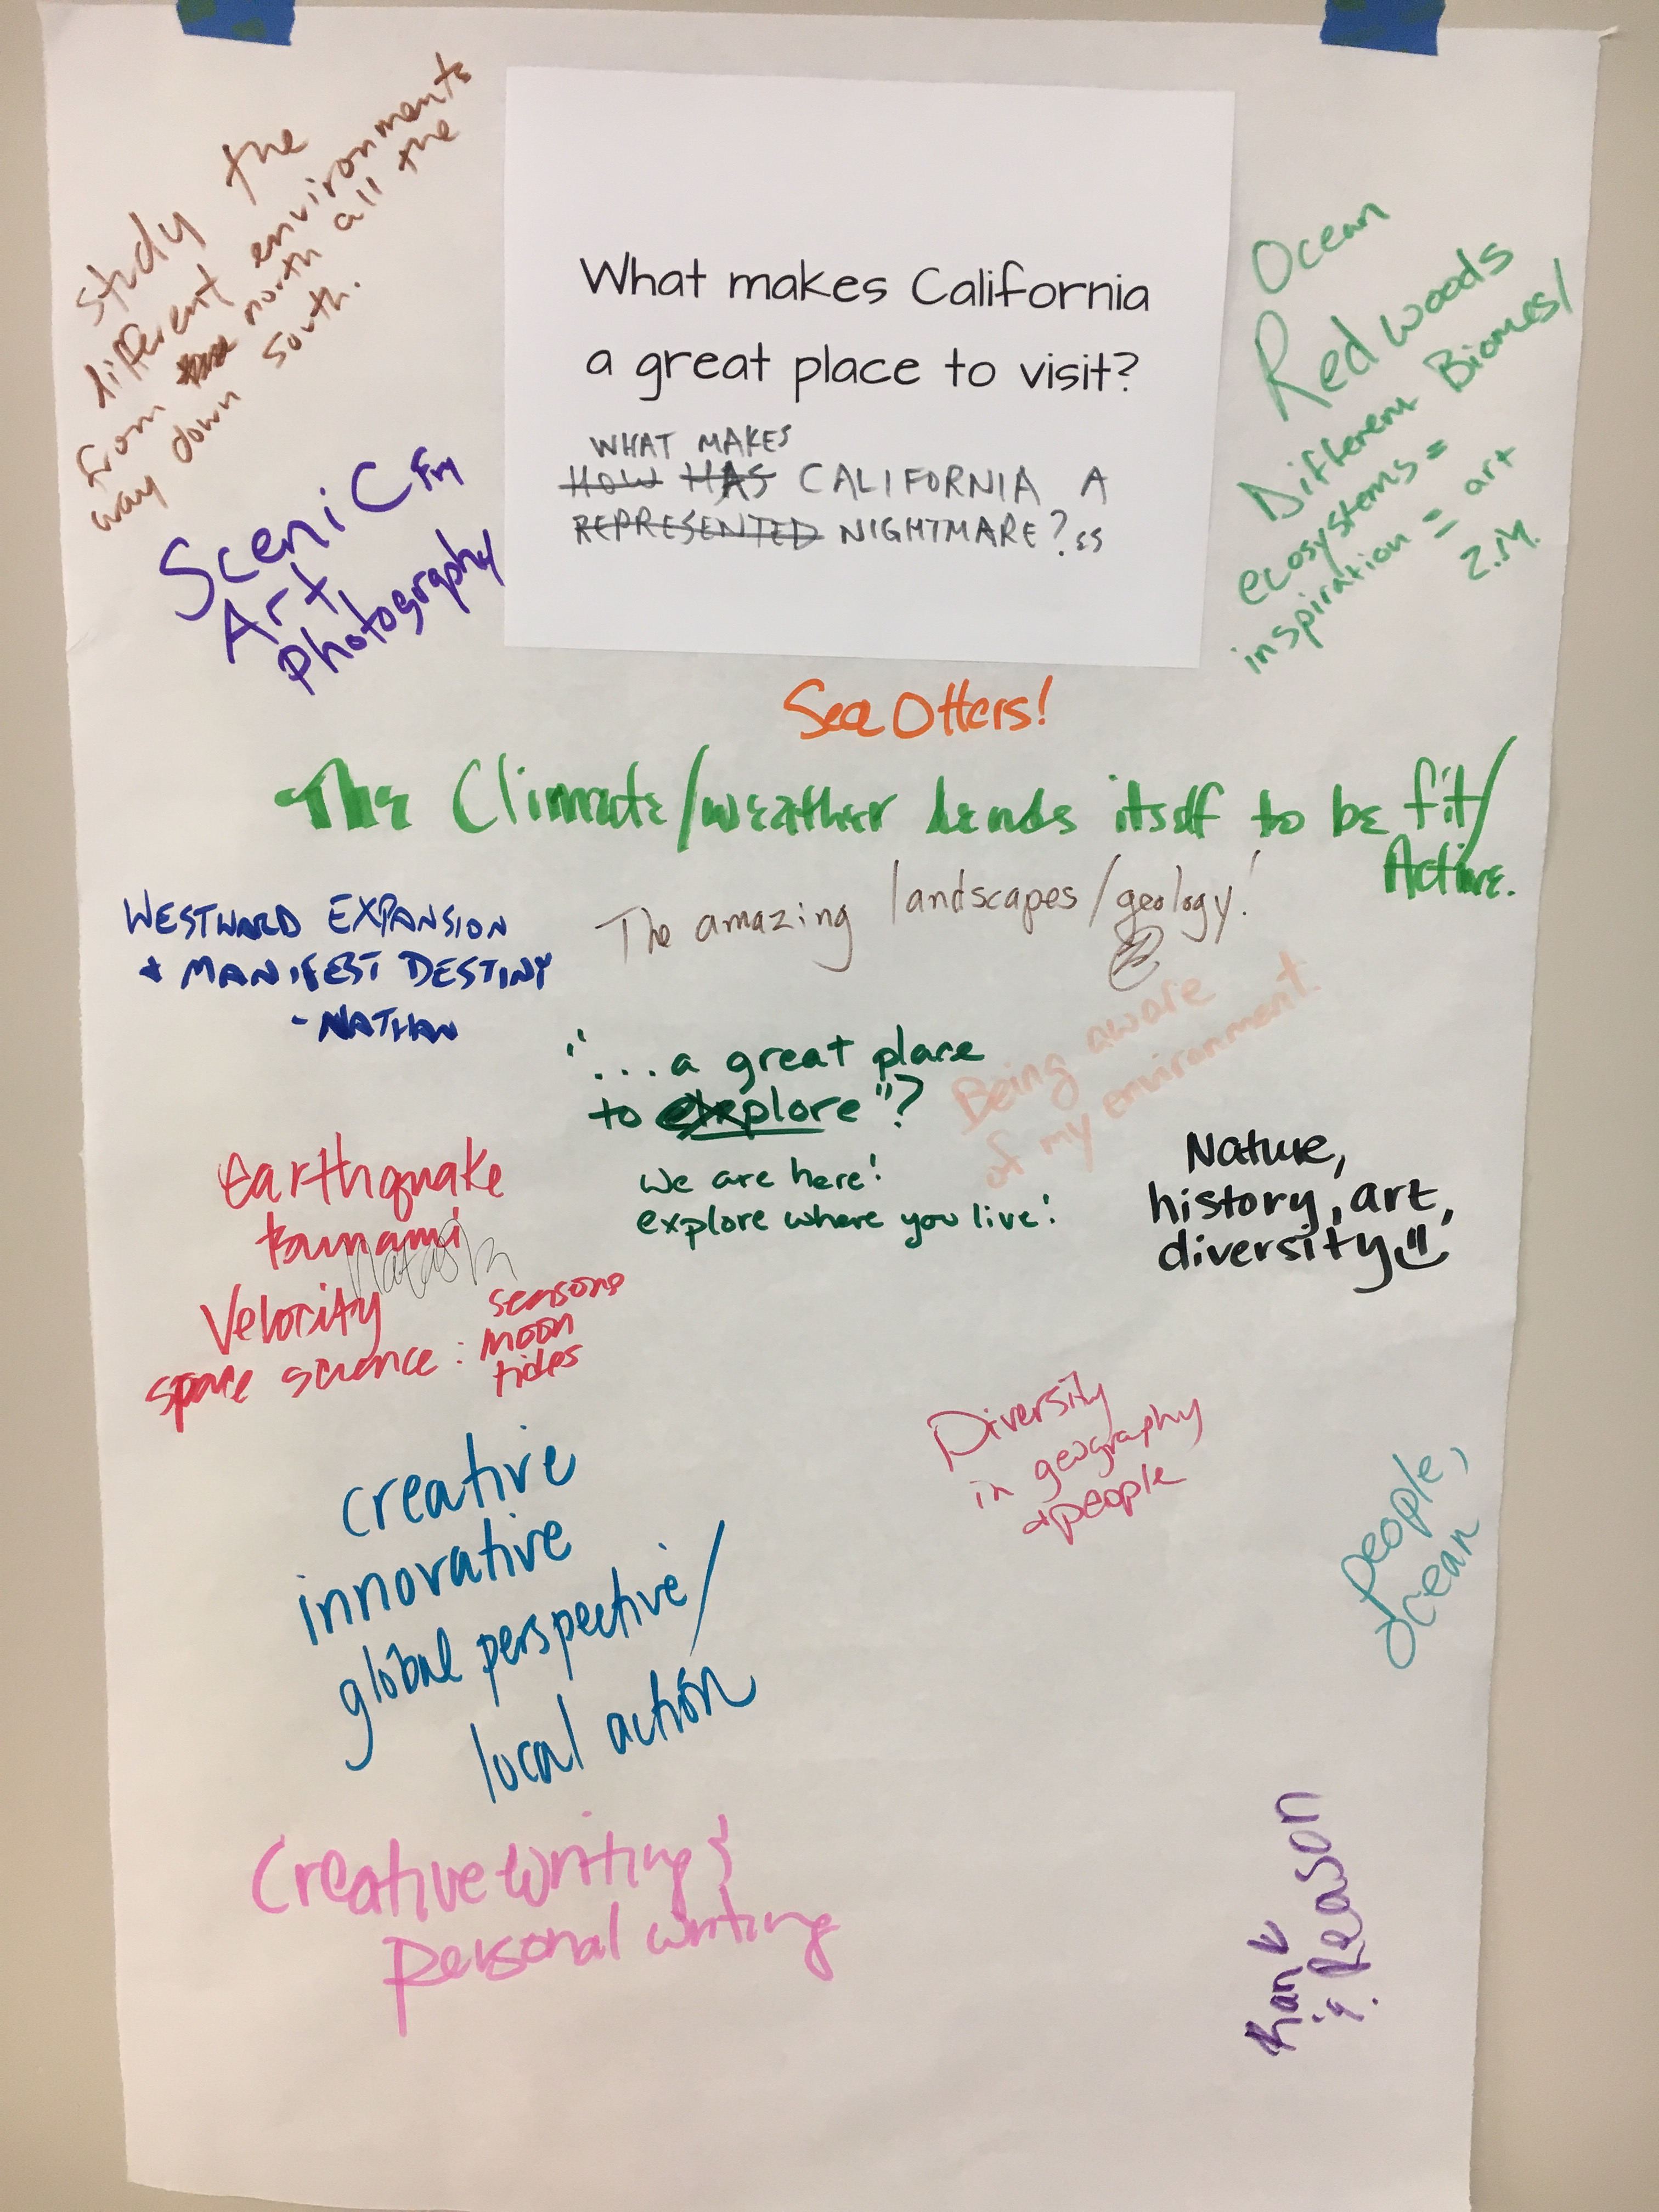 What makes California
a great place to visit?
WHAT MAKES
HOW HAS CALIFORNIA A
REPRESENTED NIGHTMARE? SS
Study the
different environments
from north all the
way down south.
Scenic
Art,
Photography
Ocean
Redwoods
Different Biomes/
ecosystems =
inspiration = art
Z.M.
Sea Otters!
The Climate/weather lends itself to be fit/
Active.
The amazing landscapes/geology!
WESTWARD EXPANSION
+ MANIFEST DESTINY
- NATHAN
"...a great place
to explore"?
We are here!
explore where you live!
Being aware
of my environment.
Nature,
history, art,
diversity
Earthquake
tsunami
Natasha
Velocity
space science: seasons
moon
tides
Diversity
in geography
+ people
creative
innovative
global perspective/
local action
people,
ocean
Creative writing &
personal writing
Reason